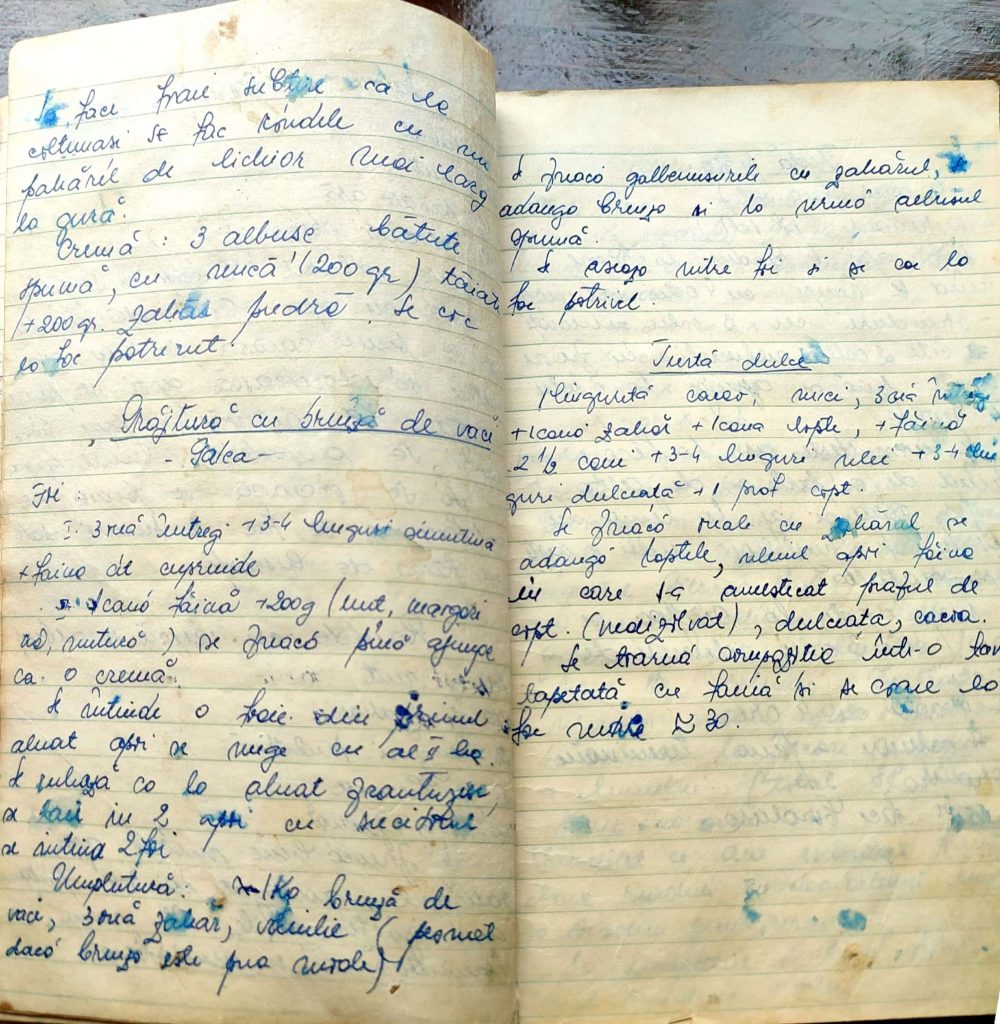 Se face foaie subțire ca la
colțunași se fac rondele cu un
păhărel de lichior mai larg
la gură.
Cremă: 3 albușe bătute
spumă, cu nucă (200 gr) tăiată
+200 gr. zahăr piedră. Se coc
la foc potrivit.
Prăjitură cu brînză de vaci
- Galca -
Foi
I. 3 ouă întregi +3-4 linguri smîntînă
+ făina cît cuprinde
II. 1 cană făină +200g (unt, margari
nă, untură) se freacă pînă ajunge
ca o cremă.
Se întinde o foaie din primul
aluat apoi se unge cu al II lea.
Se rulează ca la aluat franțuzesc,
se taie in 2 apoi cu sucitorul
se intind 2 foi
Umplutură: 1 Kg brînză de
vaci, 3 ouă zahăr, vanilie (pesmet
dacă brînza este prea moale)
Se freacă gălbenușurile cu zahărul, se
adaugă brînza si la urmă albușul
spumă.
Se așază între foi si se coc la
foc potrivit
Turtă dulce
1 linguriță cacao, nuci, 3 ouă întregi
+1 cană zahăr +1 cana lapte, + făină
2 1/2 cani +3-4 linguri ulei +3-4 lin
guri dulceață +1 praf copt.
Se freacă ouăle cu zahărul se
adaugă laptele, uleiul apoi făina
în care s-a amestecat praful de
copt. (nedizolvat), dulceața, cacao.
Se toarnă compoziția într-o tavă
tapetată cu faină si se coace la
foc mare ≈ 30.